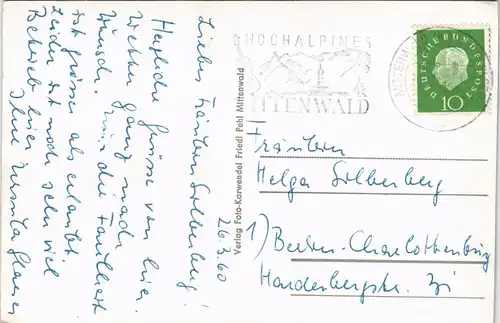 Liebes Fräulein Silberberg!
26.3.60
Herzliche Grüsse von hier.
Wetter ganz nach
Wunsch. Nur die Faulheit
ist grösser als erlaubt.
Leider ist noch sehr viel
Betrieb hier.
Ihre Ursula
Verlag Foto-Karwendel Friedl Pehl Mittenwald
HOCHALPINES
MITTENWALD
DEUTSCHE BUNDESPOST
10
Fräulein
Helga Silberberg
1) Berlin-Charlottenburg